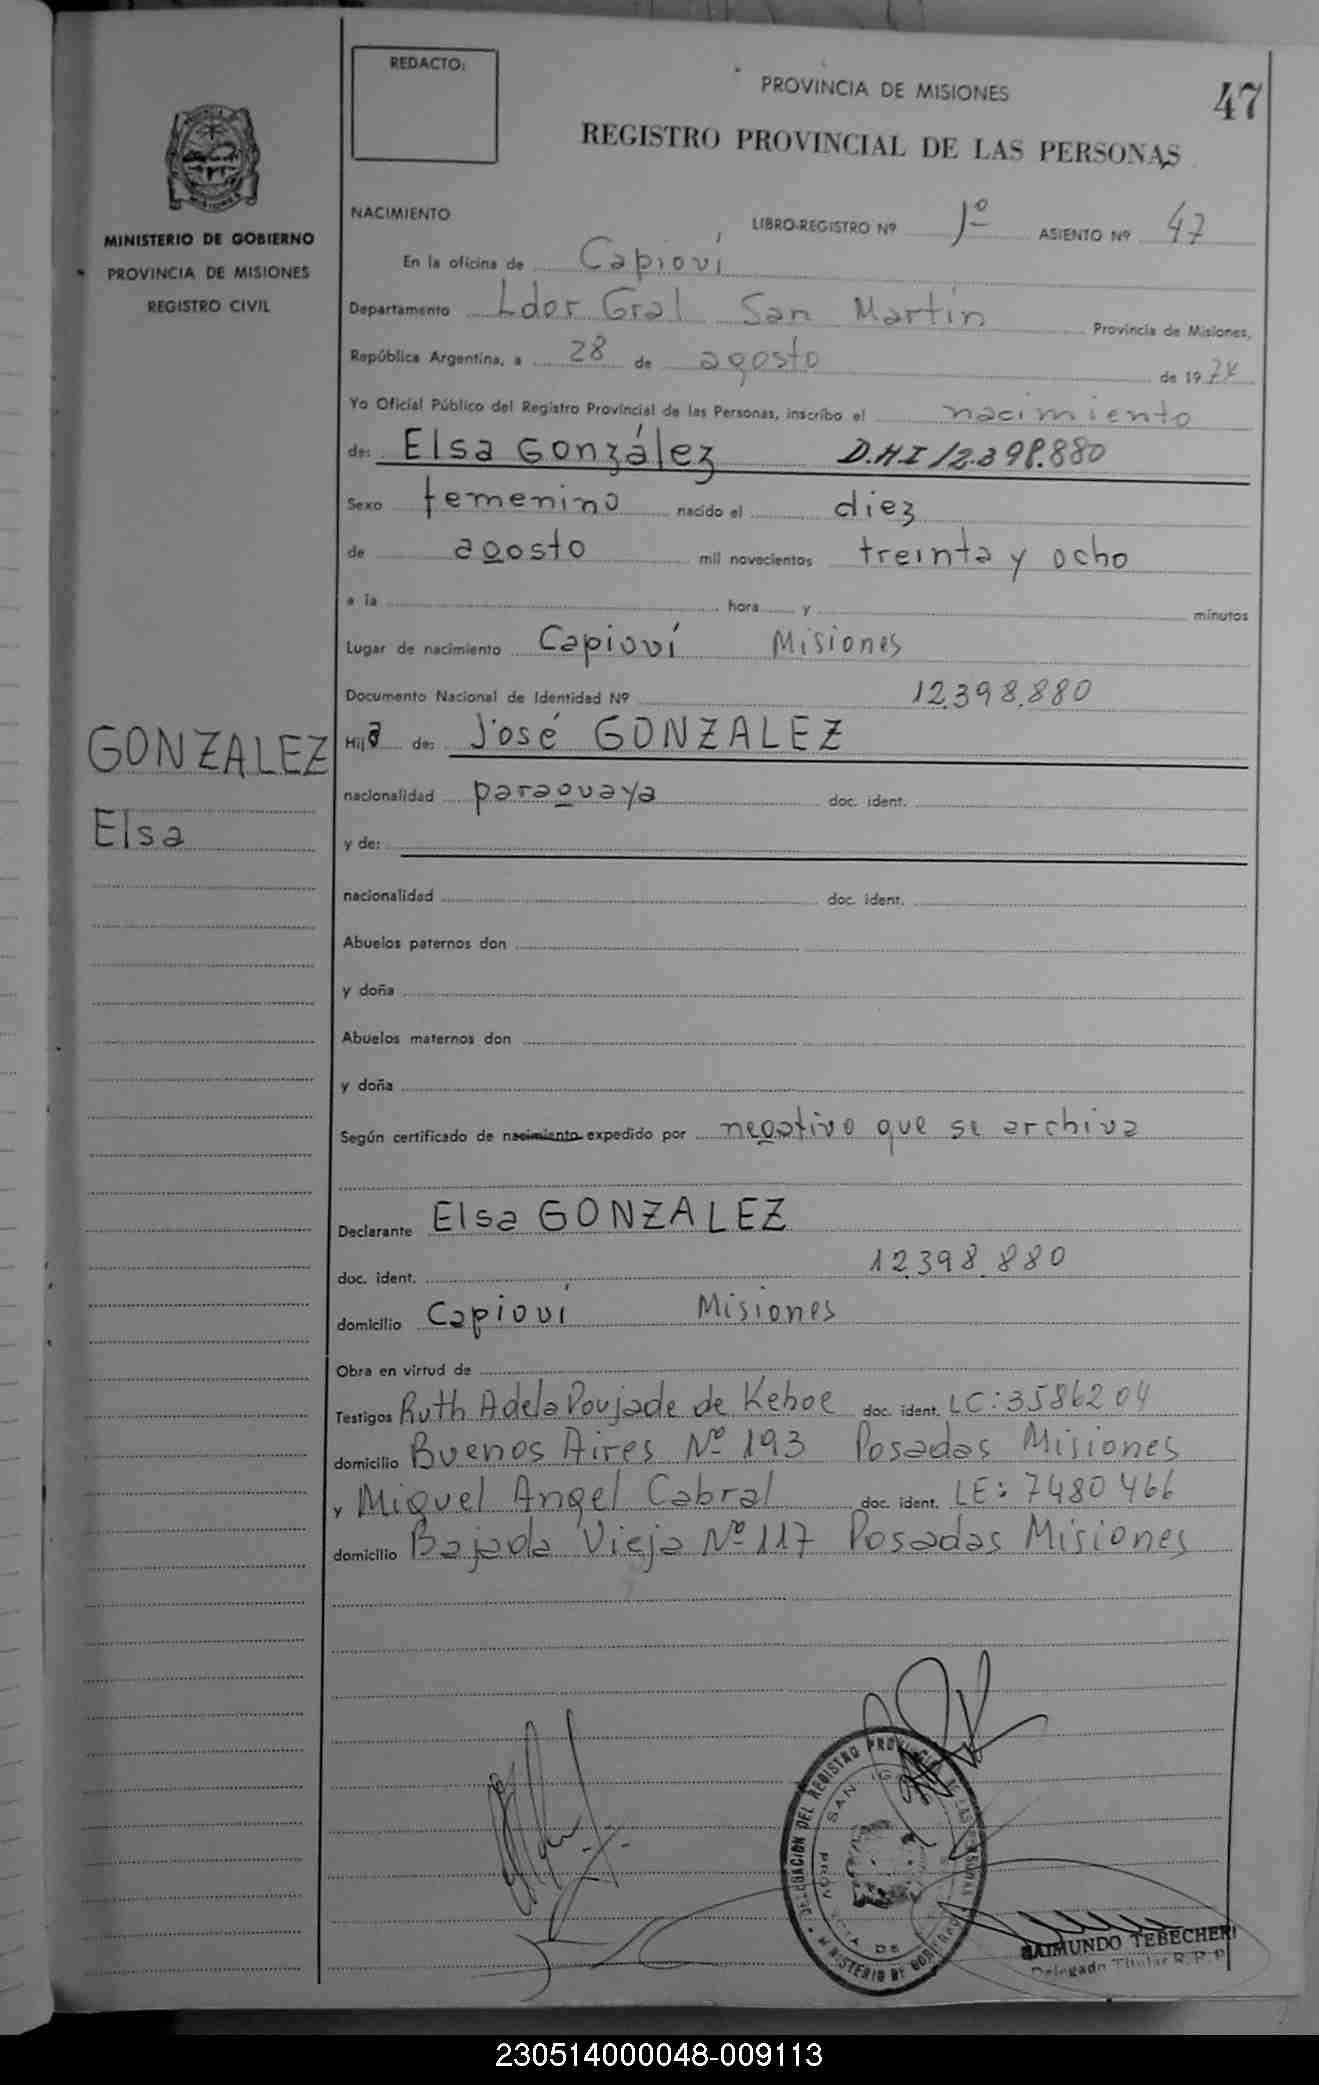 REDACTO:
PROVINCIA DE MISIONES
47
REGISTRO PROVINCIAL DE LAS PERSONAS
MINISTERIO DE GOBIERNO
PROVINCIA DE MISIONES
REGISTRO CIVIL
NACIMIENTO
LIBRO-REGISTRO Nº 1º ASIENTO Nº 47
En la oficina de Capioví
Departamento Ldor Gral San Martín Provincia de Misiones,
República Argentina, a 28 de agosto de 1974
Yo Oficial Público del Registro Provincial de las Personas, inscribo el nacimiento
de: Elsa González D.N.I 12.398.880
Sexo femenino nacido el diez
de agosto mil novecientos treinta y ocho
a la hora y minutos
Lugar de nacimiento Capioví Misiones
Documento Nacional de Identidad Nº 12.398.880
GONZALEZ
Elsa
Hija de: José GONZALEZ
nacionalidad paraguaya doc. ident.
y de:
nacionalidad doc. ident.
Abuelos paternos don
y doña
Abuelos maternos don
y doña
Según certificado de nacimiento expedido por negativo que se archiva
Declarante Elsa GONZALEZ
doc. ident. 12.398.880
domicilio Capioví Misiones
Obra en virtud de
Testigos Ruth Adela Poujade de Kehoe doc. ident. LC: 3586204
domicilio Buenos Aires Nº 193 Posadas Misiones
y Miguel Angel Cabral doc. ident. LE: 7480466
domicilio Bajada Vieja Nº 117 Posadas Misiones
DELEGACION DEL REGISTRO PROVINCIAL DE LAS PERSONAS
SAN IG
MINISTERIO DE GOBIERNO
RAIMUNDO TEBECHERI
Delegado Titular R. P. P.
230514000048-009113